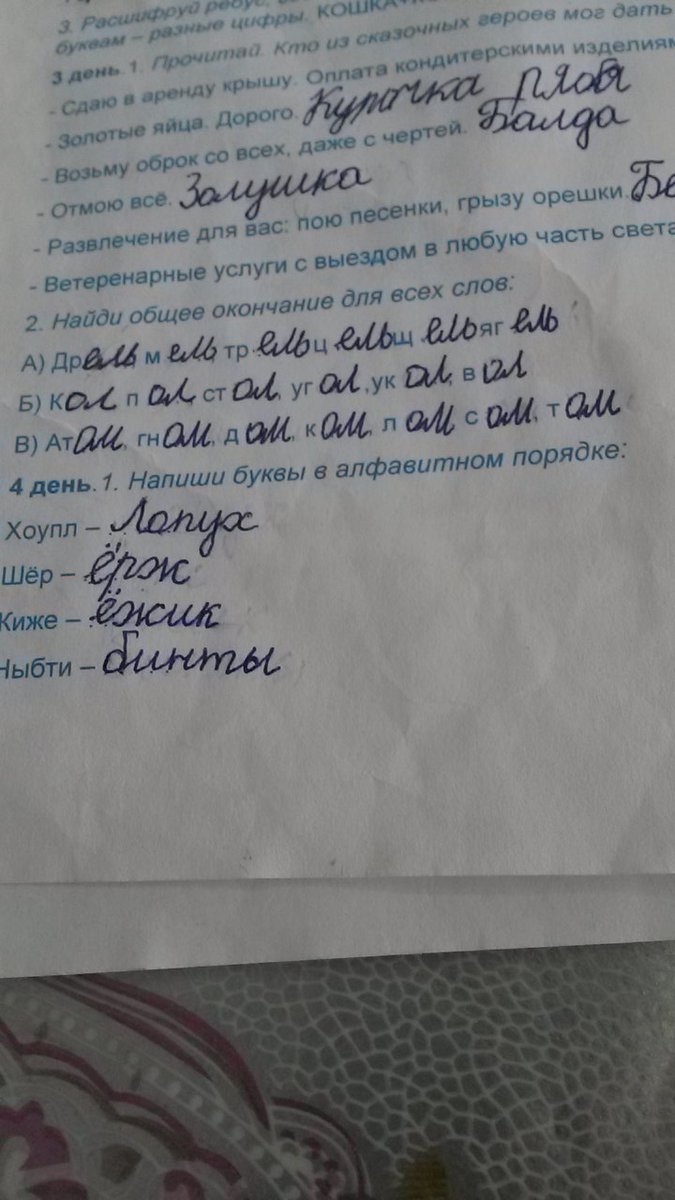 3. Расшифруй ребус,
буквам – разные цифры. КОШКА+
3 день. 1. Прочитай. Кто из сказочных героев мог дать
- Сдаю в аренду крышу. Оплата кондитерскими изделиям
- Золотые яйца. Дорого. Курочка Ряба
- Возьму оброк со всех, даже с чертей. Балда
- Отмою всё. Золушка
- Развлечение для вас: пою песенки, грызу орешки. Бе
- Ветеренарные услуги с выездом в любую часть света
2. Найди общее окончание для всех слов:
А) Дрель мель трель цель щель ягель
Б) Кол, пол, стол, угол, укол, вол
В) Атом, гном, дом, ком, лом сом, том
4 день. 1. Напиши буквы в алфавитном порядке:
Хоупл – Лопух
Шёр – ёрж
Киже – ёжик
Ныбти – бинты